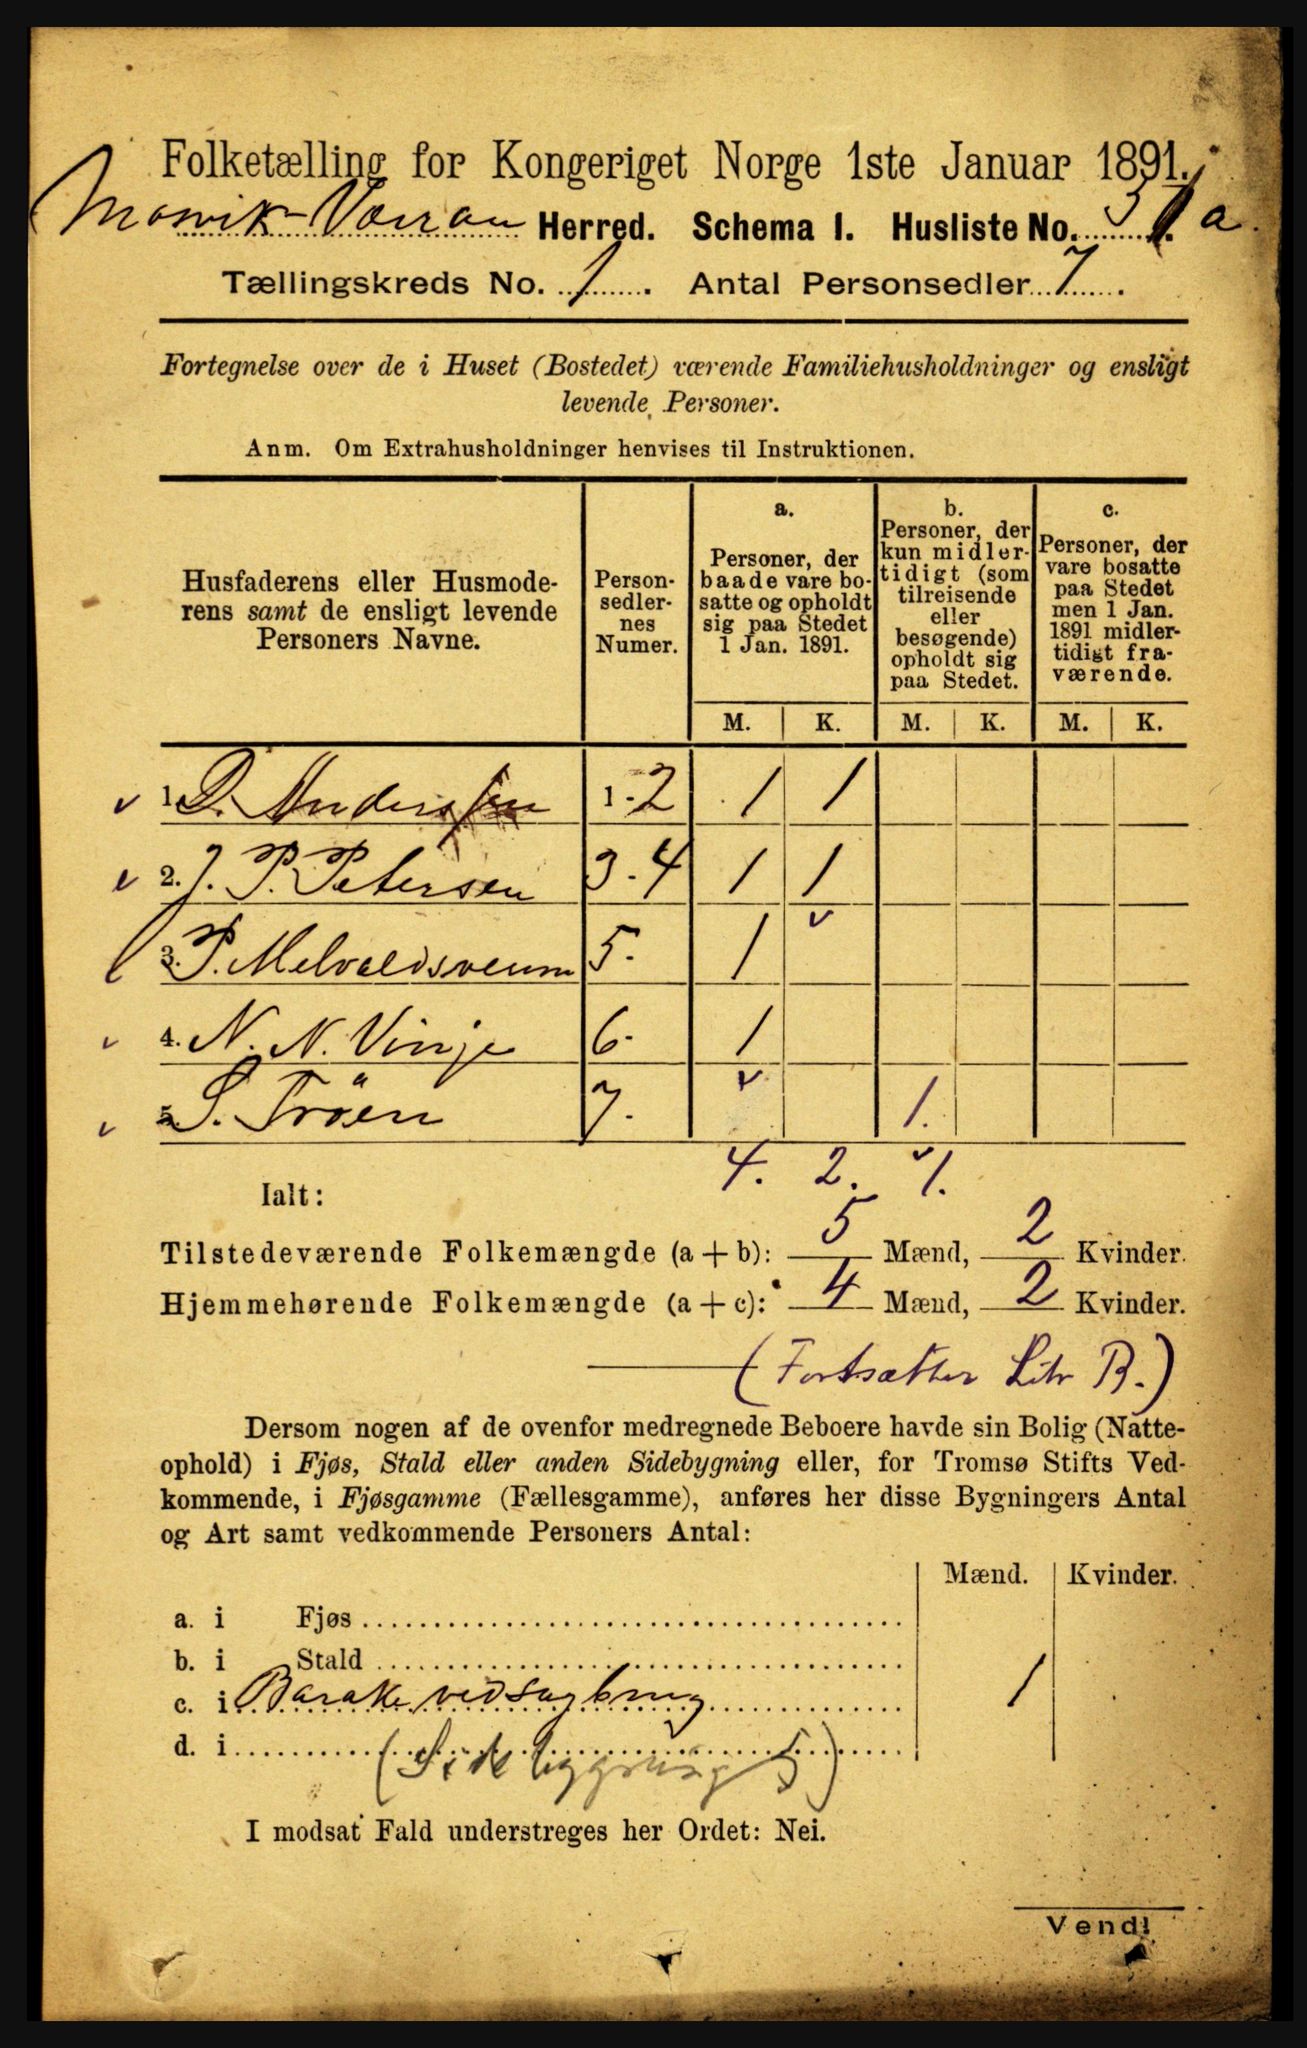 Folketælling for Kongeriget Norge 1ste Januar 1891.
Mosvik-Værran Herred. Schema 1. Husliste No. 31 a.
Tællingskreds No. 1. Antal Personsedler 7.
Fortegnelse over de i Huset (Bostedet) værende Familiehusholdninger og ensligt
levende Personer.
Anm. Om Extrahusholdninger henvises til Instruktionen.
Husfaderens eller Husmode-
rens samt de ensligt levende
Personers Navne.
Person-
sedler-
nes
Numer.
a.
Personer, der
baade vare bo-
satte og opholdt
sig paa Stedet
1 Jan. 1891.
b.
Personer, der
kun midler-
tidigt (som
tilreisende
eller
besøgende)
opholdt sig
paa Stedet.
c.
Personer, der
vare bosatte
paa Stedet
men 1 Jan.
1891 midler-
tidigt fra-
værende.
M. K. M. K. M. K.
1. D. Anderssen 1-2 1 1
2. J. P. Petersen 3-4 1 1
3. P. Melvaldsveum 5. 1
4. N. N. Vinje 6. 1
5. S. Tröen 7. 1.
4. 2. 1.
Ialt:
Tilstedeværende Folkemængde (a + b): 5 Mænd, 2 Kvinder.
Hjemmehørende Folkemængde (a + c): 4 Mænd, 2 Kvinder.
(Fortsætter Litr B.)
Dersom nogen af de ovenfor medregnede Beboere havde sin Bolig (Natte-
ophold) i Fjøs, Stald eller anden Sidebygning eller, for Tromsø Stifts Ved-
kommende, i Fjøsgamme (Fællesgamme), anføres her disse Bygningers Antal
og Art samt vedkommende Personers Antal:
Mænd. Kvinder.
a. i Fjøs
b. i Stald
c. i Barake ved sagbrug 1
d. i (Sidebygning 5)
I modsat Fald understreges her Ordet: Nei.
Vend!